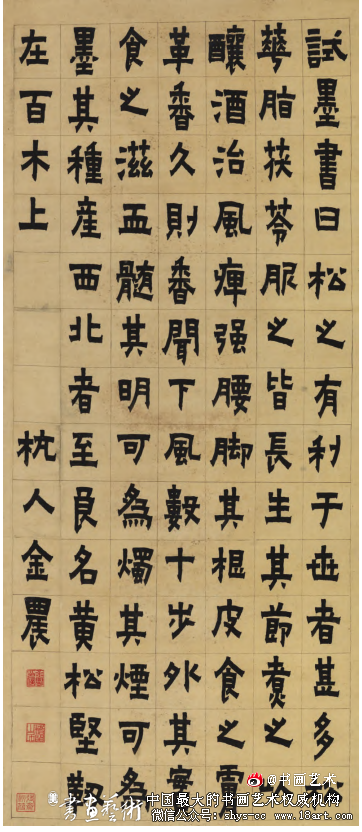 試墨書曰松之有利于世者甚多
華脂茯苓服之皆長生其節煮之
釀酒治風痺强腰脚其根皮食之
革香久則香聞下風數十步外其實
食之滋血髓其明可為燭其煙可為
墨其種産西北者至良名黄松堅靱
在百木上 杭人金農
@书画艺术
書畫藝術 中国最大的书画艺术权威机构
微信公众号: shys-cc www.11848.com